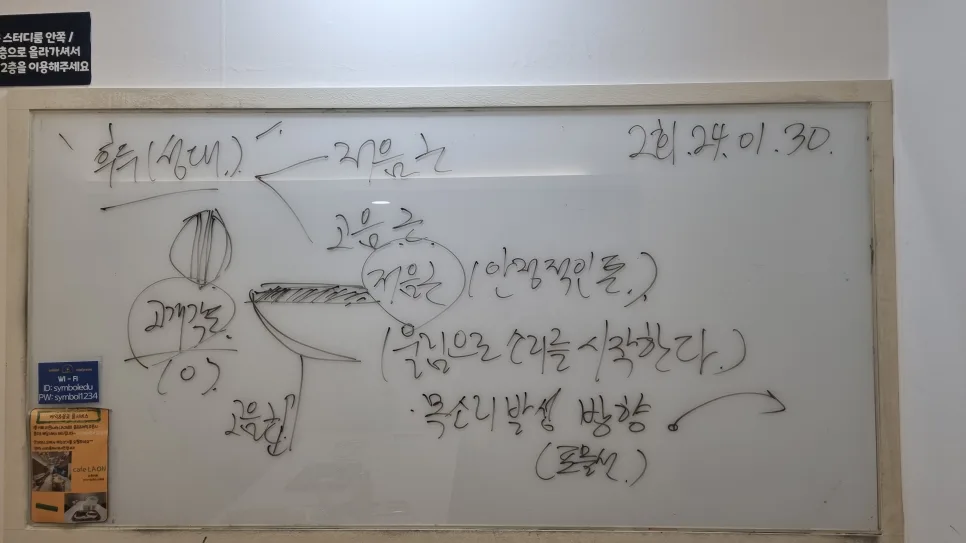 스터디룸 안쪽 /
층으로 올라가셔서
2층을 이용해주세요
후두(성대.)
저음근
2회.24.01.30.
고음근
저음근 (안정적인 톤.)
고개각도.
(o).
(울림으로 소리를 시작한다.)
고음근
· 목소리 발성 방향
(포물선.)
WI-FI
ID: symboledu
PW: symbol1234
cafe LAON